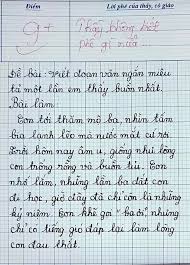 Điểm
Lời phê của thầy, cô giáo
9+
Thầy không biết
phê gì nữa...
Đề bài: Viết đoạn văn ngắn miêu
tả một lần em thấy buồn nhất.
Bài làm:
Con tới thăm mộ ba, nhìn tấm
bia lạnh lẽo mà nước mắt cứ rơi.
Trời hôm nay âm u, giống như lòng
con trống rỗng và buồn tủi. Con
nhớ lắm, những lần ba dắt con
đi học, giờ đây đã chỉ còn là những
kỷ niệm. Con khẽ gọi "ba ơi" nhưng
chỉ có tiếng gió đáp lại làm lòng
con đau thắt.